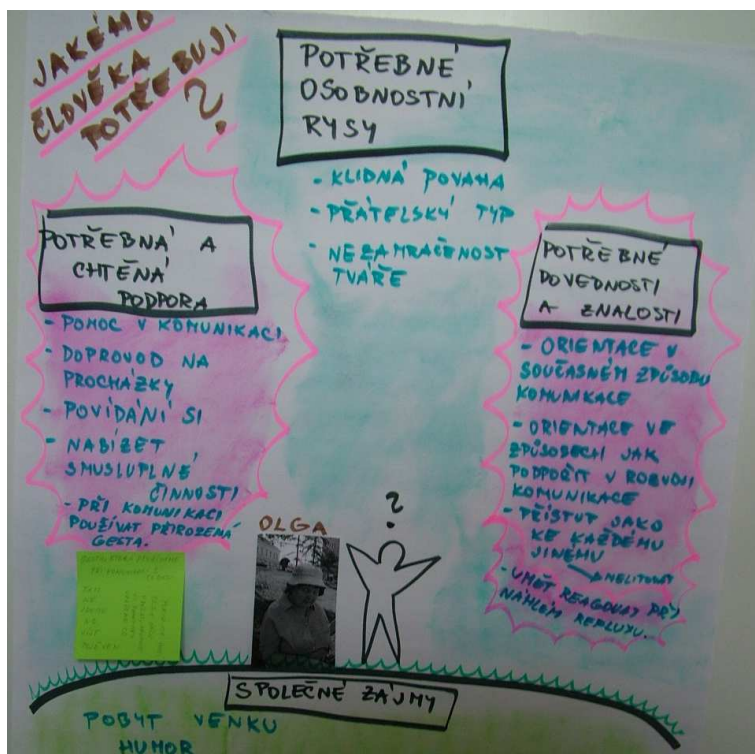 JAKÉHO
ČLOVĚKA
POTŘEBUJI
?
POTŘEBNÉ
OSOBNOSTNÍ
RYSY
- KLIDNÁ POVAHA
- PŘÁTELSKÝ TYP
- NEZAMRAČENOST
TVÁŘE
POTŘEBNÁ A
CHTĚNÁ
PODPORA
- POMOC V KOMUNIKACI
- DOPROVOD NA
PROCHÁZKY
- POVÍDÁNÍ SI
- NABÍZET
SMUSLUPLNÉ
ČINNOSTI
- PŘI KOMUNIKACI
POUŽÍVAT PŘIROZENÁ
GESTA.
POTŘEBNÉ
DOVEDNOSTI
A ZNALOSTI
- ORIENTACE V
SOUČASNÉM ZPŮSOBU
KOMUNIKACE
- ORIENTACE VE
ZPŮSOBECH JAK
PODPOŘIT V ROZVOJI
KOMUNIKACE
- PŘÍSTUP JAKO
KE KAŽDÉMU
JINÉMU
→ NELITOVAT
- UMĚT REAGOVAT PŘI
NÁHLÉM REFLUXU.
OLGA
?
SPOLEČNÉ ZÁJMY
POBYT VENKU
HUMOR